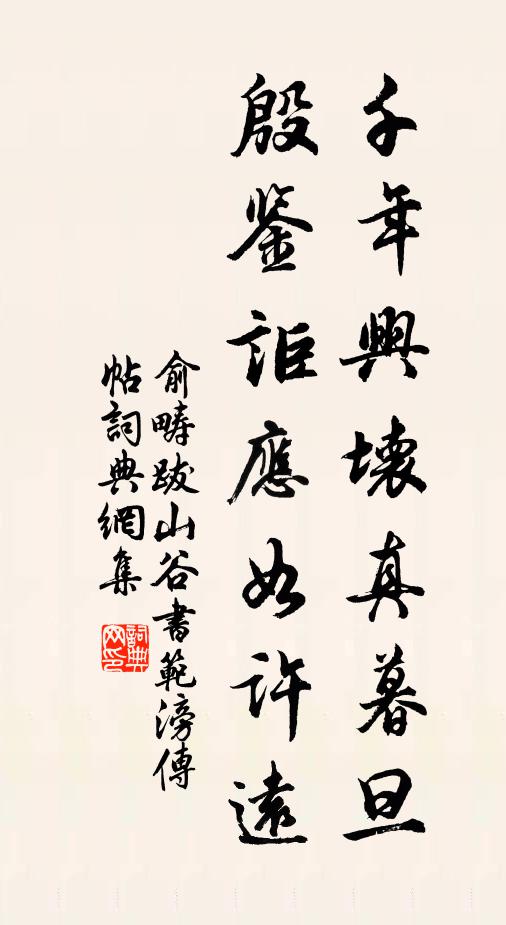 千年興壞真暮旦
殷鑒詎應如許遠
俞疇跋山谷書範滂傳
帖詞典網集
詞典網印